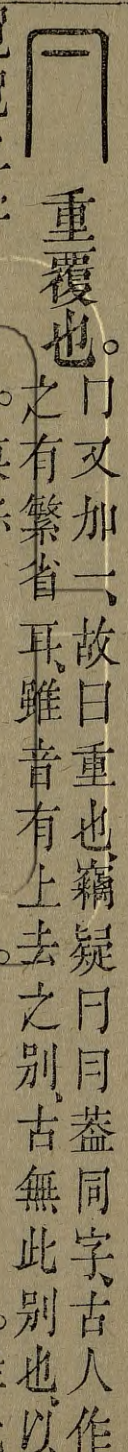 𠔼
重覆也。
冂又加一、故曰重也、竊疑𠔼冃葢同字、古人作
之有繁省耳、雖音有上去之別、古無此別也、以